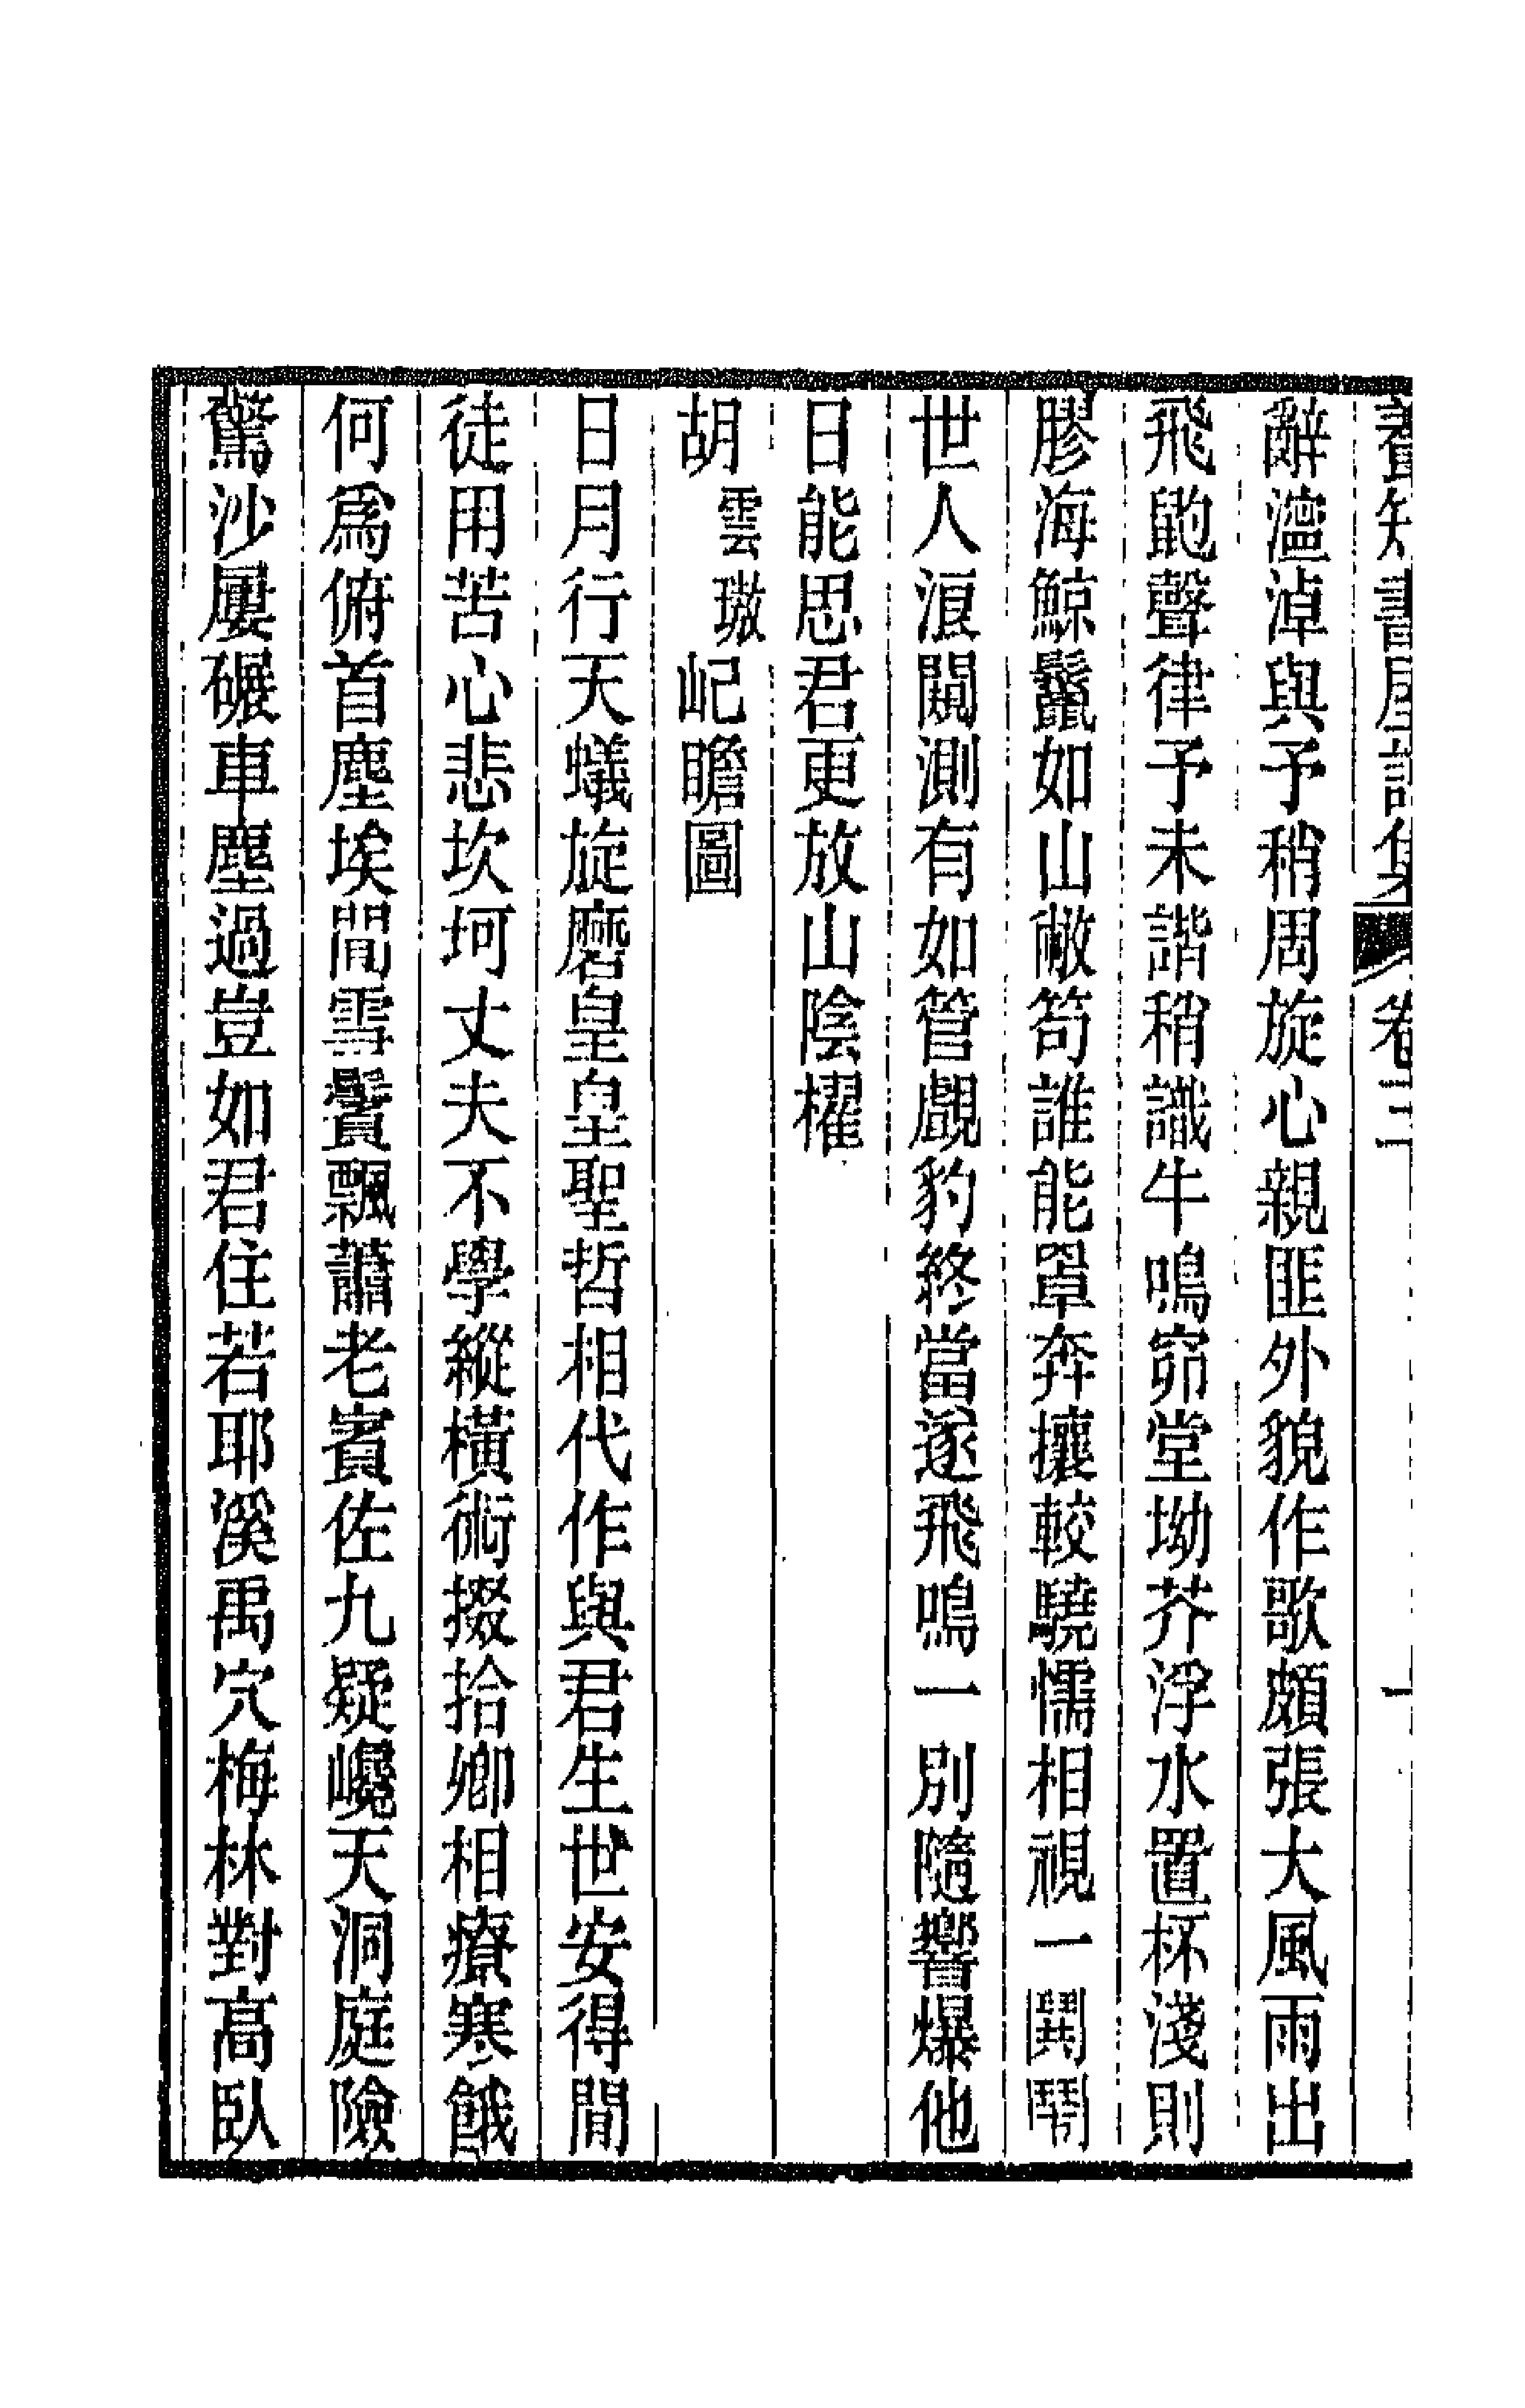 養知書屋詩集 卷三 十
辭淖與予稍周旋心親匪外貌作歌頗張大風雨出
飛聲律予未諧稍識牛鳴窌堂坳芥浮水置杯淺則
膠海鯨鬣如山敝笱誰能罩奔攘較驍懦相視一鬨鬧
世人浪闚測有如管覷豹終當遂飛鳴一別隨響爆他
日能思君更放山陰櫂
胡雲璈屺瞻圖
日月行天蟻旋磨皇皇聖哲相代作與君生世安得閒
徒用苦心悲坎坷丈夫不學縱橫術掇拾卿相療寒餓
何爲俯首塵埃閒雪鬢飄蕭老賓佐九疑巉天洞庭險
驚沙屢碾車塵過豈如君住若耶溪禹穴梅林對高臥